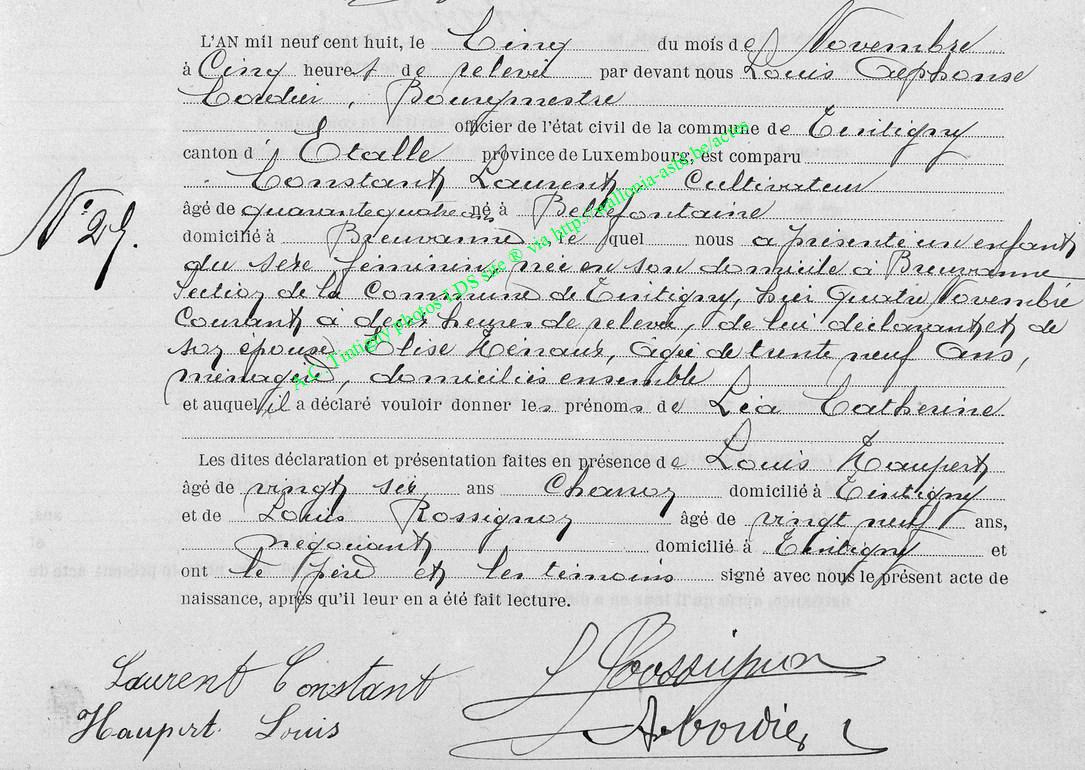 L'AN mil neuf cent huit, le Cinq du mois de Novembre
à Cinq heures de relevée par devant nous Louis Alphonse
Cordier, Bourgmestre
officier de l'état civil de la commune de Tintigny
canton d' Etalle province de Luxembourg, est comparu
Constant Laurent, Cultivateur
âgé de quarante quatre ans né à Bellefontaine
domicilié à Breuvanne, le quel nous a présenté un enfant
du sexe féminin, née en son domicile à Breuvanne
Section de la Commune de Tintigny, hier quatre Novembre
Courant à deux heures de relevée, de lui déclarant et de
son épouse Elise Hénaux, âgée de trente neuf ans,
ménagère, domiciliés ensemble
et auquel il a déclaré vouloir donner les prénoms de Léa Catherine
Les dites déclaration et présentation faites en présence de Louis Haupert
âgé de vingt six ans domicilié à Tintigny
et de Louis Rossignon âgé de vingt neuf ans,
négociant domicilié à Tintigny et
ont le père et les témoins signé avec nous le présent acte de
naissance, après qu'il leur en a été fait lecture.
N° 29.
Laurent Constant
L Rossignon
Haupert Louis
A Cordier
A.C. Tintigny photos LDS site ® via http://wallonia-asbl.be/actes